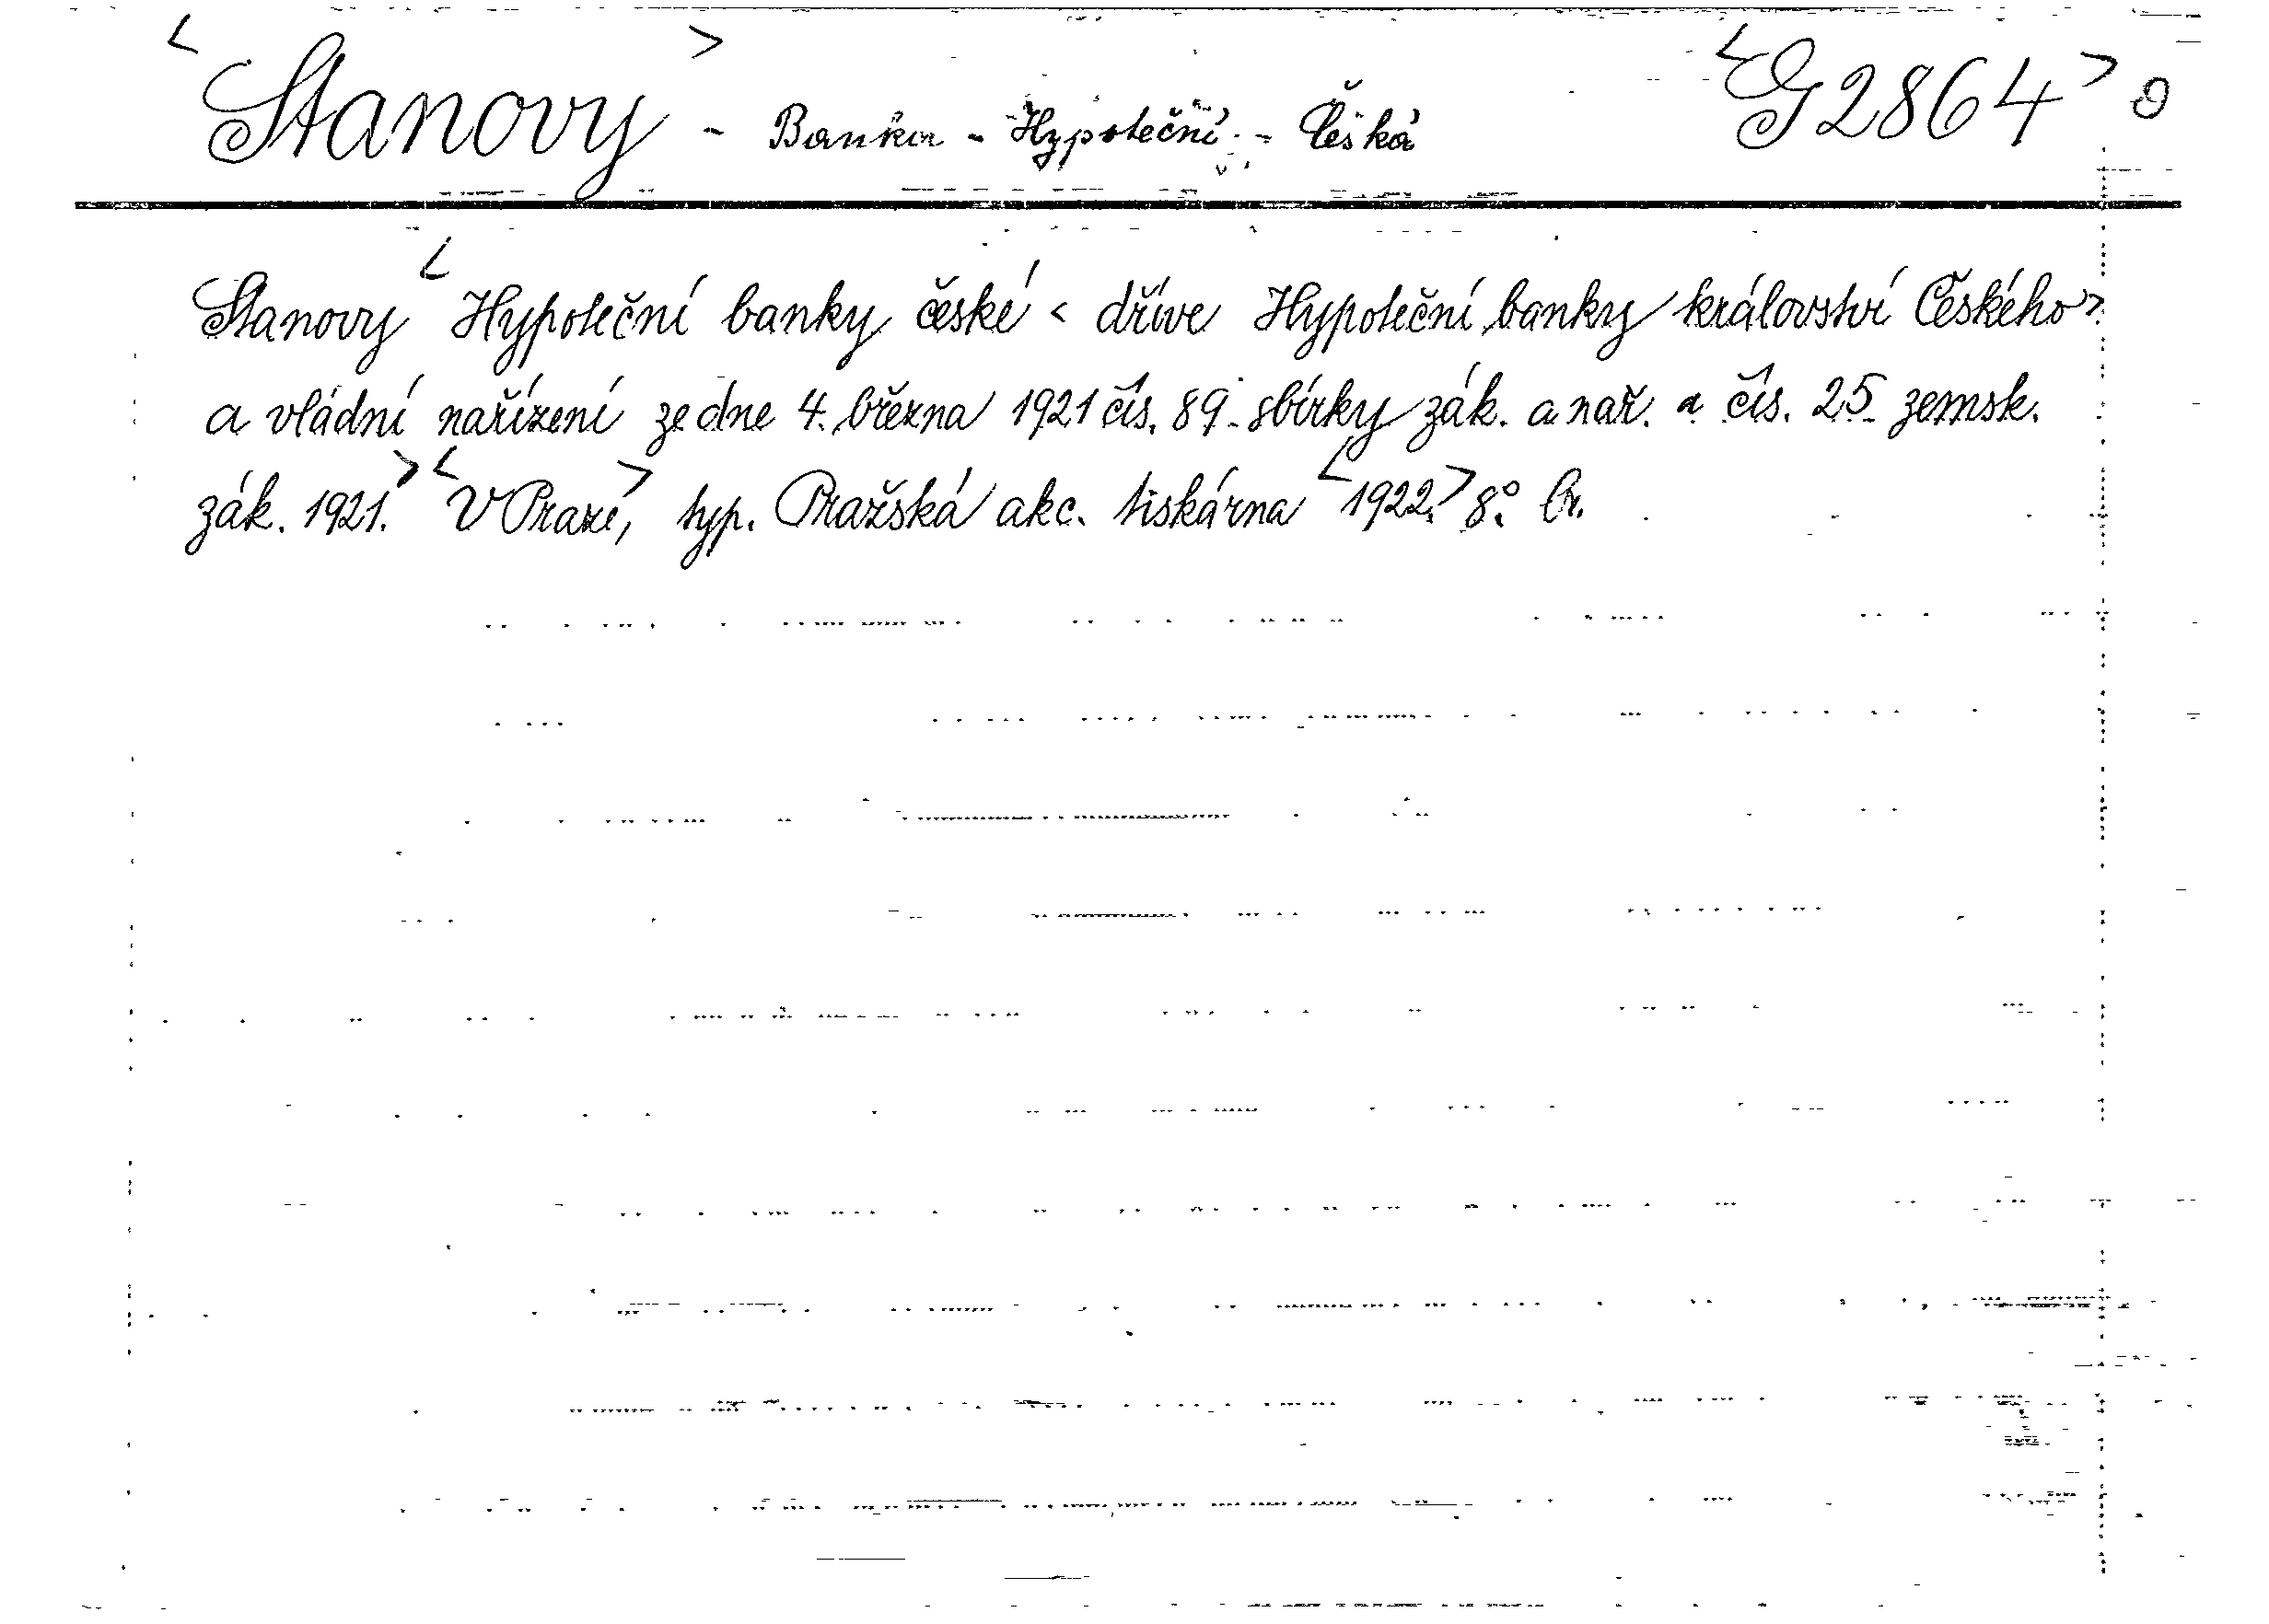 <Stanovy> - Banka - Hypoteční - Česká <G 2864> 9
Stanovy <Hypoteční banky české < dříve Hypoteční banky království Českého>
a vládní nařízení ze dne 4. března 1921 čís. 89 sbírky zák. a nař. a čís. 25 zemsk.
zák. 1921.> <V Praze,> typ. Pražská akc. tiskárna <1922.> 8.° Br.